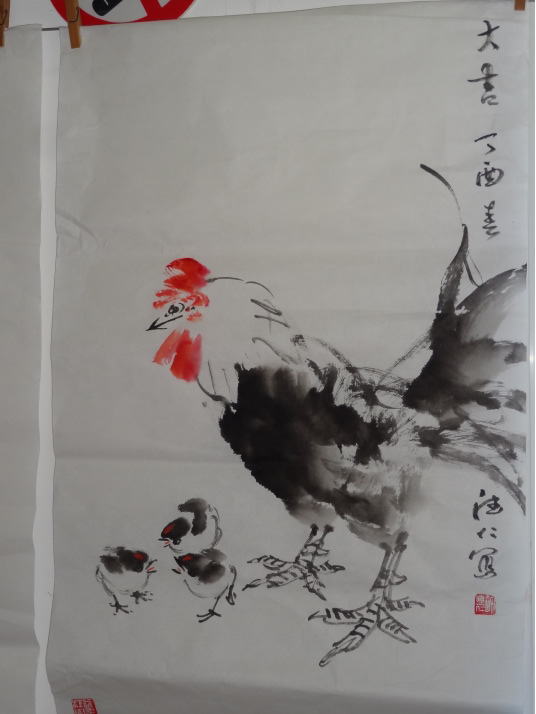 大吉 丁酉春
德仁写